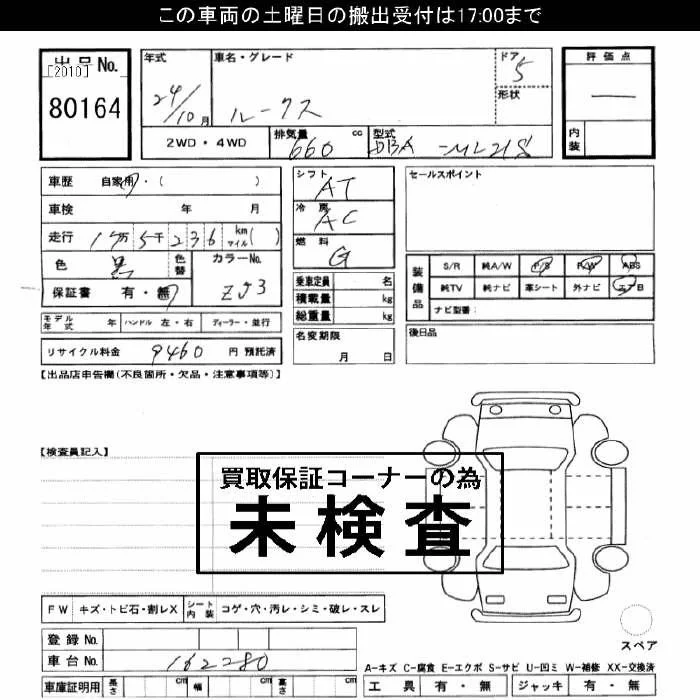 この車両の土曜日の搬出受付は17:00まで
出品No.
[2010]
80164
年式
24/10月
車名・グレード
ルークス
ドア
5
形状
評価点
―
内装
2WD・4WD
排気量
660 cc
型式
DBA-ML21S
車歴 自家用・( )
車検 年 月
走行 15万5千236 km マイル( )
色 黒 色替
カラーNo.
ZJ3
保証書 有・無
シフト
AT
冷房
AC
燃料
G
乗車定員 名
積載量 kg
総重量 kg
セールスポイント
装備品
S/R 純A/W P/S P/W ABS
純TV 純ナビ 革シート 外ナビ エアB
ナビ型番:
モデル年式 年 ハンドル 左・右 ディーラー・並行
名変期限
月 日
後日品
リサイクル料金 9460 円 預託済
【出品店申告欄(不良箇所・欠品・注意事項等)】
【検査員記入】
買取保証コーナーの為
未検査
FW キズ・トビ石・割レX シート内装 コゲ・穴・汚レ・シミ・破レ・スレ
登録No.
車台No. 162280
スペア
A-キズ C-腐食 E-エクボ S-サビ U-凹ミ W-補修 XX-交換済
車庫証明用 長さ cm 幅 cm 高さ cm
工具 有・無 ジャッキ 有・無